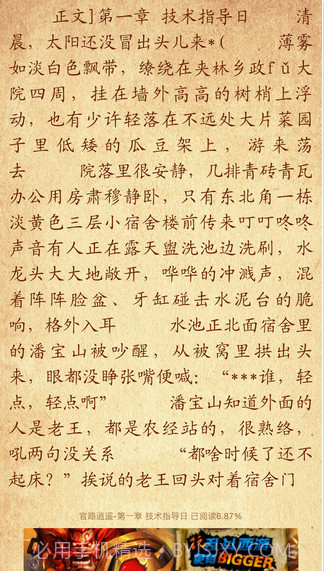 正文]第一章 技术指导日 清
晨，太阳还没冒出头儿来*( 薄雾
如淡白色飘带，缭绕在夹林乡政fǔ大
院四周，挂在墙外高高的树梢上浮
动，也有少许轻落在不远处大片菜园
子里低矮的瓜豆架上，游来荡
去 院落里很安静，几排青砖青瓦
办公用房肃穆静卧，只有东北角一栋
淡黄色三层小宿舍楼前传来叮叮咚咚
声音有人正在露天盥洗池边洗刷，水
龙头大大地敞开，哗哗的冲溅声，混
着阵阵脸盆、牙缸碰去水泥台的脆
响，格外入耳 水池正北面宿舍里
的潘宝山被吵醒，从被窝里拱出头
来，眼都没睁张嘴便喊：“***谁，轻
点，轻点啊” 潘宝山知道外面的
人是老王，都是农经站的，很熟络，
吼两句没关系 “都啥时候了还不
起床？”挨说的老王回头对着宿舍门
官路逍遥-第一章 技术指导日 已阅读6.87%
BIGGER
必用手机精选